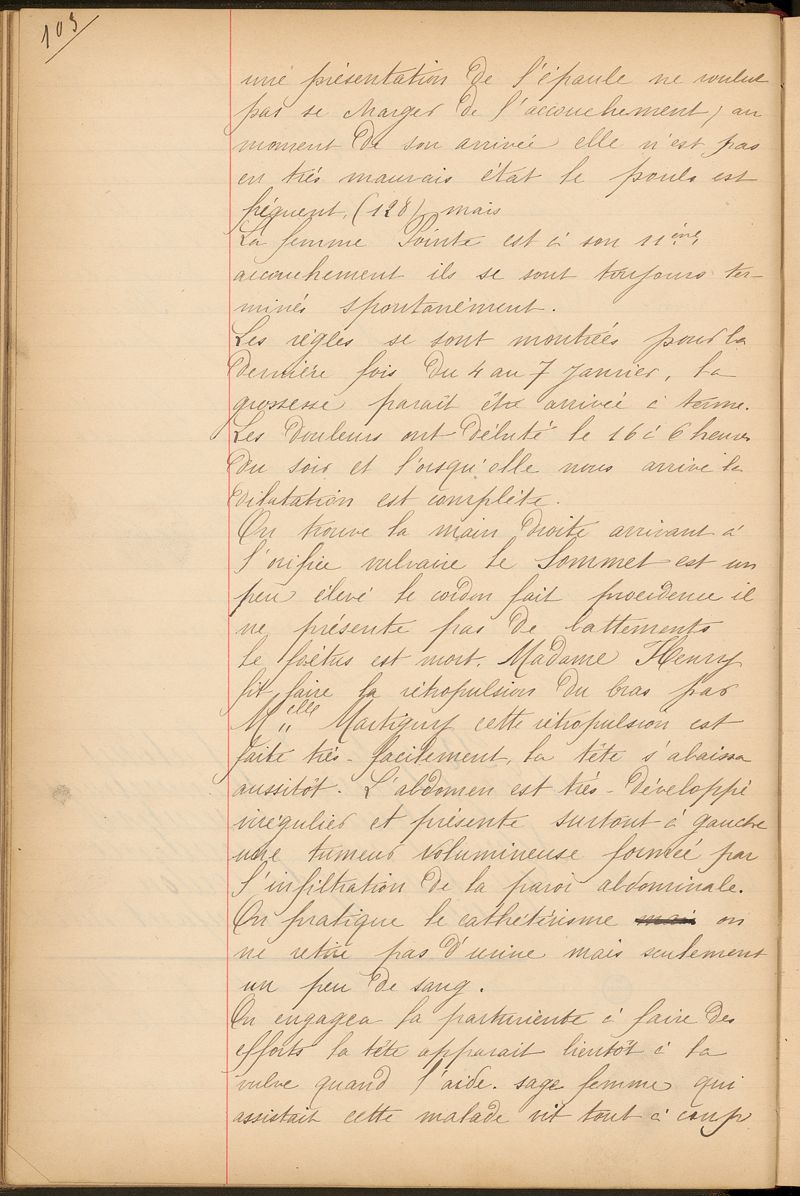 103
une présentation de l'épaule ne voulut
pas se charger de l'accouchement, au
moment de son arrivée elle n'est pas
en très mauvais état le pouls est
fréquent, (128) mais
La femme Pointe est à son 11ème
accouchement ils se sont toujours ter-
minés spontanément.
Les règles se sont montrées pour la
dernière fois du 4 au 7 Janvier, la
grossesse parait être arrivée à terme.
Les douleurs ont débuté le 16 à 6 heures
du soir et lorsqu'elle nous arrive la
dilatation est complète.
On trouve la main droite arrivant à
l'orifice vulvaire le Sommet est un
peu élevé le cordon fait procidence il
ne présente pas de battements
le foetus est mort. Madame Henry
fit faire la rétropulsion du bras par
Melle Martigny cette rétropulsion est
faite très-facilement, la tête s'abaissa
aussitôt. L'abdomen est très-développé
irrégulier et présente surtout à gauche
une tumeur volumineuse formée par
l'infiltration de la paroi abdominale.
On pratique le cathétérisme mais on
ne retire pas d'urine mais seulement
un peu de sang.
On engagea la parturiente à faire des
efforts la tête apparait bientôt à la
vulve quand l'aide-sage femme qui
assistait cette malade vit tout à coup